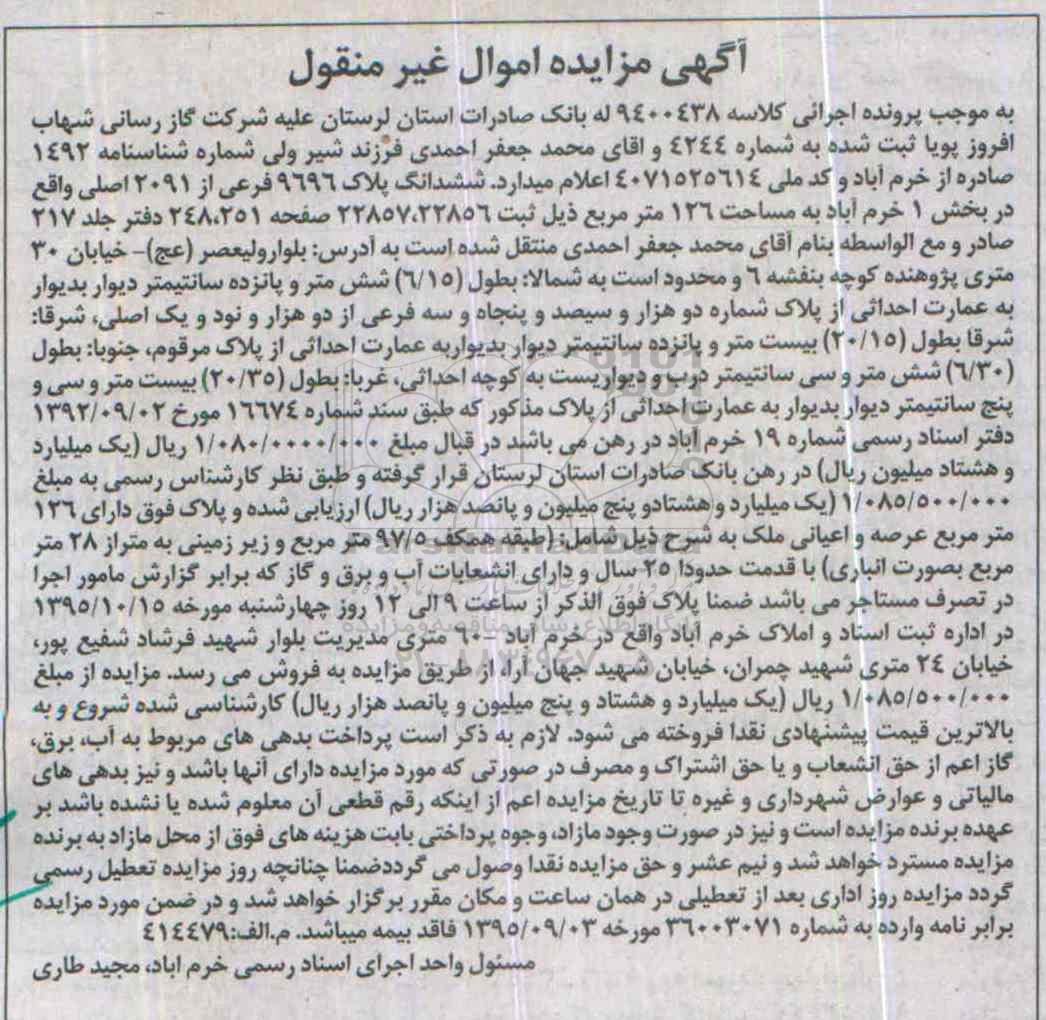 آگهی مزایده اموال غیر منقول
به موجب پرونده اجرائی کلاسه ۹٤۰۰٤۳۸ له بانک صادرات استان لرستان علیه شرکت گاز رسانی شهاب
افروز پویا ثبت شده به شماره ٤۲٤٤ و اقای محمد جعفر احمدی فرزند شیر ولی شماره شناسنامه ۱٤۹۲
صادره از خرم آباد و کد ملی ٤۰۷۱۵۲۵٦۱٤ اعلام میدارد. ششدانگ پلاک ۹٦۹٦ فرعی از ۲۰۹۱ اصلی واقع
در بخش ۱ خرم آباد به مساحت ۱۲٦ متر مربع ذیل ثبت ۲۲۸۵۷،۲۲۸۵٦ صفحه ۲٤۸،۲۵۱ دفتر جلد ۲۱۷
صادر و مع الواسطه بنام آقای محمد جعفر احمدی منتقل شده است به آدرس: بلوارولیعصر (عج)- خیابان ۳۰
متری پژوهنده کوچه بنفشه ٦ و محدود است به شمالا: بطول (٦/۱۵) شش متر و پانزده سانتیمتر دیوار بدیوار
به عمارت احداثی از پلاک شماره دو هزار و سیصد و پنجاه و سه فرعی از دو هزار و نود و یک اصلی، شرقا:
شرقا بطول (۲۰/۱۵) بیست متر و پانزده سانتیمتر دیوار بدیواربه عمارت احداثی از پلاک مرقوم، جنوبا: بطول
(٦/۳۰) شش متر و سی سانتیمتر درب و دیواریست به کوچه احداثی، غربا: بطول (۲۰/۳۵) بیست متر و سی و
پنج سانتیمتر دیوار بدیوار به عمارت احداثی از پلاک مذکور که طبق سند شماره ۱٦٦۷٤ مورخ ۱۳۹۲/۰۹/۰۲
دفتر اسناد رسمی شماره ۱۹ خرم آباد در رهن می باشد در قبال مبلغ ۱/۰۸۰/۰۰۰۰/۰۰۰ ریال (یک میلیارد
و هشتاد میلیون ریال) در رهن بانک صادرات استان لرستان قرار گرفته و طبق نظر کارشناس رسمی به مبلغ
۱/۰۸۵/۵۰۰/۰۰۰ (یک میلیارد و هشتادو پنج میلیون و پانصد هزار ریال) ارزیابی شده و پلاک فوق دارای ۱۲٦
متر مربع عرصه و اعیانی ملک به شرح ذیل شامل: (طبقه همکف ۹۷/۵ متر مربع و زیر زمینی به متراژ ۲۸ متر
مربع بصورت انباری) با قدمت حدودا ۲۵ سال و دارای انشعابات آب و برق و گاز که برابر گزارش مامور اجرا
در تصرف مستاجر می باشد ضمنا پلاک فوق الذکر از ساعت ۹ الی ۱۲ روز چهارشنبه مورخه ۱۳۹۵/۱۰/۱۵
در اداره ثبت اسناد و املاک خرم آباد واقع در خرم آباد -٦۰ متری مدیریت بلوار شهید فرشاد شفیع پور،
خیابان ۲٤ متری شهید چمران، خیابان شهید جهان آرا، از طریق مزایده به فروش می رسد. مزایده از مبلغ
۱/۰۸۵/۵۰۰/۰۰۰ ریال (یک میلیارد و هشتاد و پنج میلیون و پانصد هزار ریال) کارشناسی شده شروع و به
بالاترین قیمت پیشنهادی نقدا فروخته می شود. لازم به ذکر است پرداخت بدهی های مربوط به آب، برق،
گاز اعم از حق انشعاب و یا حق اشتراک و مصرف در صورتی که مورد مزایده دارای آنها باشد و نیز بدهی های
مالیاتی و عوارض شهرداری و غیره تا تاریخ مزایده اعم از اینکه رقم قطعی آن معلوم شده یا نشده باشد بر
عهده برنده مزایده است و نیز در صورت وجود مازاد، وجوه پرداختی بابت هزینه های فوق از محل مازاد به برنده
مزایده مسترد خواهد شد و نیم عشر و حق مزایده نقدا وصول می گرددضمنا چنانچه روز مزایده تعطیل رسمی
گردد مزایده روز اداری بعد از تعطیلی در همان ساعت و مکان مقرر برگزار خواهد شد و در ضمن مورد مزایده
برابر نامه وارده به شماره ۳٦۰۰۳۰۷۱ مورخه ۱۳۹۵/۰۹/۰۳ فاقد بیمه میباشد. م.الف:٤۱٤٤۷۹
مسئول واحد اجرای اسناد رسمی خرم اباد، مجید طاری